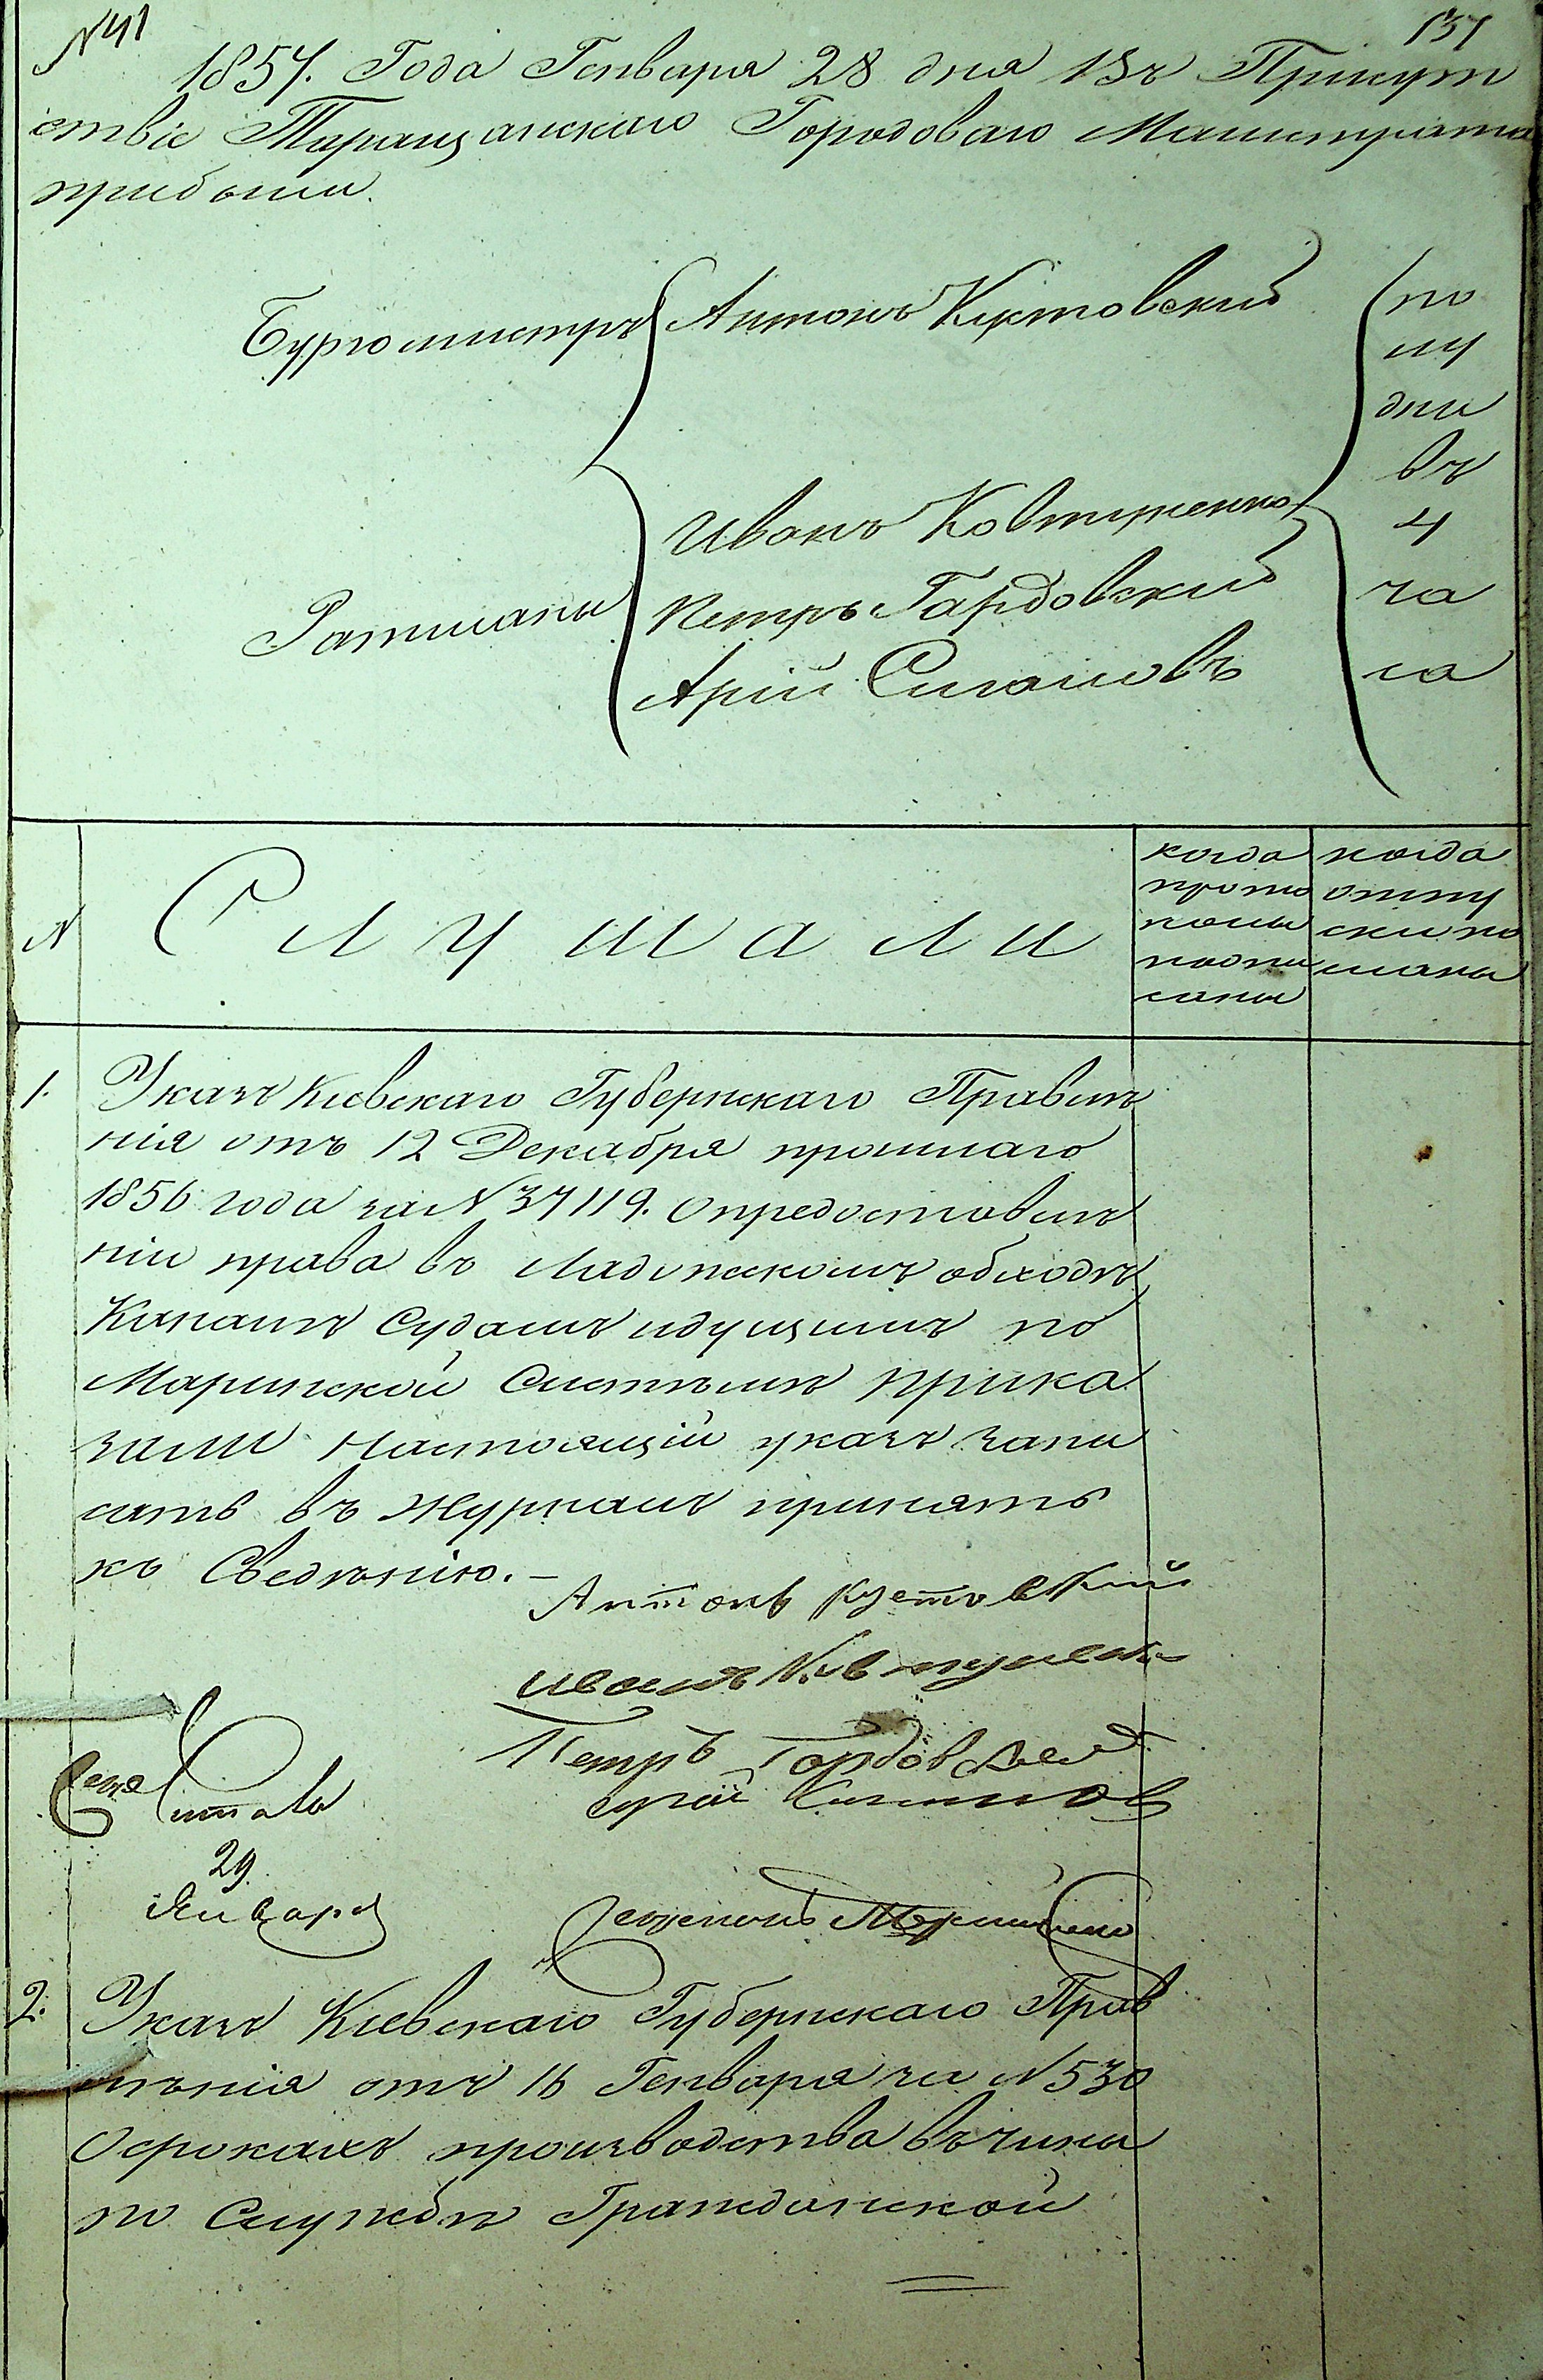 N 41
137
1857. Года Генваря 28 дня Въ Присут
ствіе Таращанскаго Городоваго Магистрата
прибыли.
Бургомистръ Антонъ Кустовскій
Иванъ Ковтуненко
Ратманы Петръ Гардовскій
Арій Сигаловъ
по
лу
дни
въ
4
ча
са
N Слушали
когда
прото
колы
подпи
саны
когда
отпу
ски по
сланы
1. Указъ Кіевскаго Губернскаго Правлѣ
нія отъ 12 Декабря прошлаго
1856 года за N 37119. о предоставлѣ
ніи права въ Ладожскомъ обходѣ
Каналѣ Судамъ идущимъ по
Маріинской Систѣмѣ Прика
зали Настоящій указъ запи
сать въ Журналъ принять
къ Сведѣнію. –
Антонъ Кустовскій
Иванъ Ковтуненко
Петръ Гордовскій
Арій Сигаловъ
29
Января
2. Указъ Кіевскаго Губернскаго Прав
лѣнія отъ 16 Генваря за N 530
О срокахъ производства въ чины
по Службѣ Гражданской